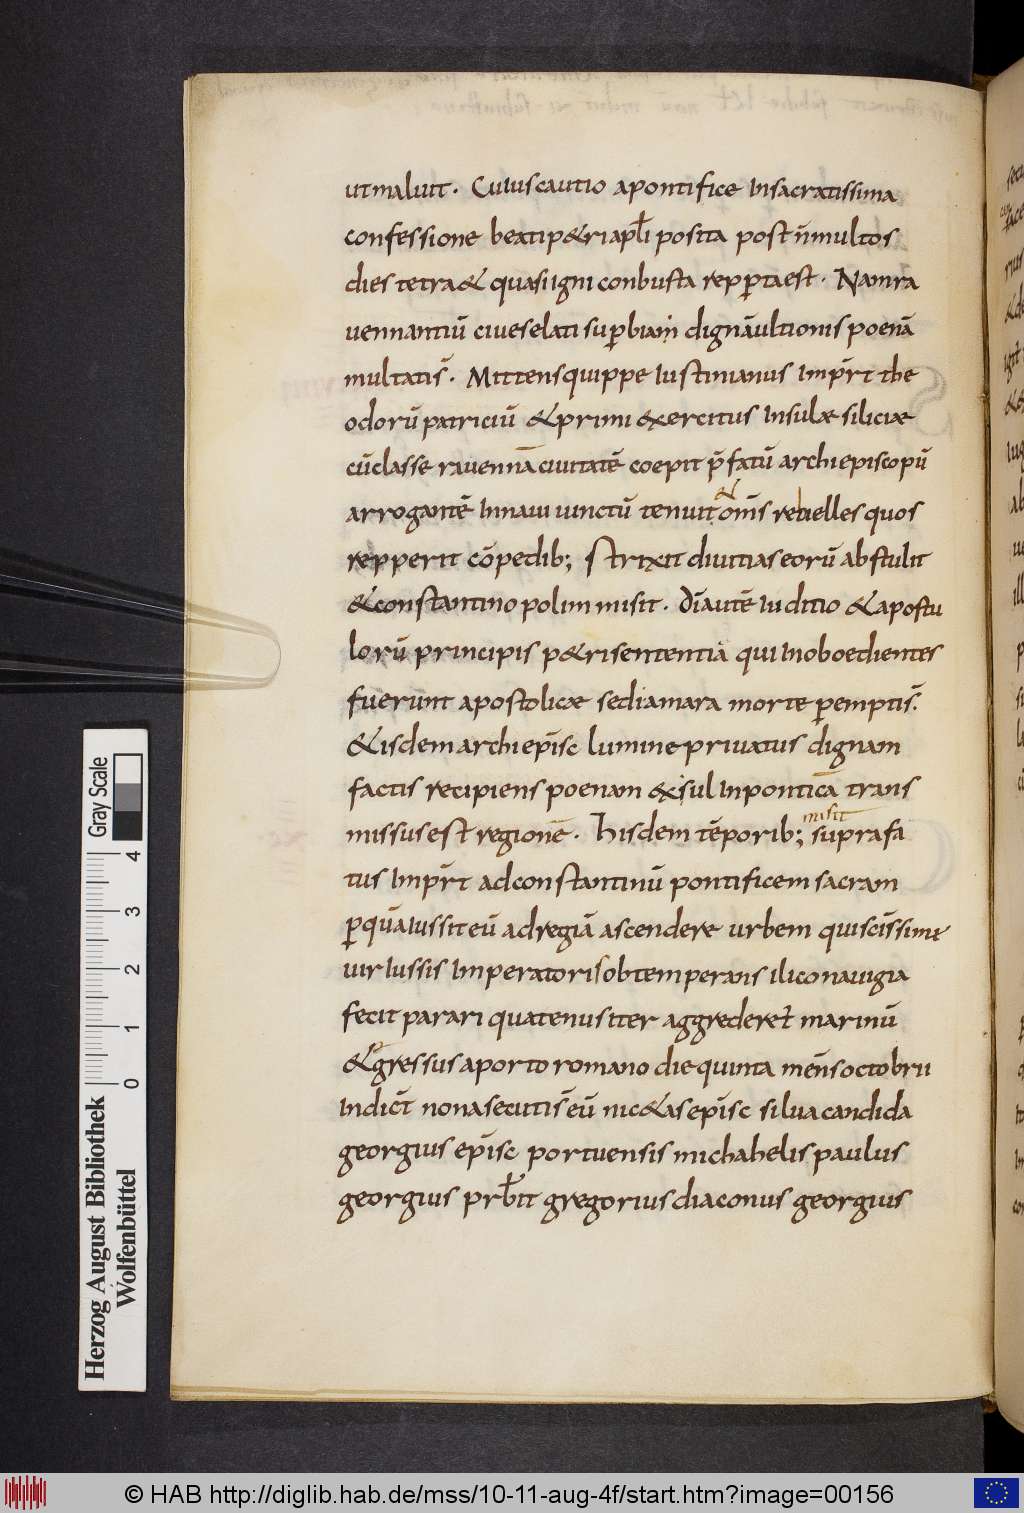 ut maluit. Cuius cautio a pontifice in sacratissima
confessione beati p&ri apl̄i posita post n̄ multos
dies tetra & quasi igni conbusta repperta est. Nam ra
uennantiū ciues elati superbiam dignā ultionis poenā
multatis̄. Mittens quippe iustinianus imp̄rt the
odorū patriciū & primi exercitus insulae siliciae
cū classe rauennā ciuitatē coepit p̄fatū archiepiscopū
arrogantē in naui uinctū tenuit & om̄s rebelles quos
repperit cōpedib; strixit diuitias eorū abstulit
& constantinopolim misit. Dī autē iuditio & apostu
lorū principis p&ri sententia qui inoboedientes
fuerunt apostolicae sedi amara morte p̱empti s̄.
& isdem archiep̄isc lumine priuatus dignam
factis recipiens poenam exsul in ponticā trans
missus est regionē. Hisdem tēporib; misit suprafa
tus imp̄rt ad constantinū pontificem sacram
p̱ quā iussit eū ad regiā ascendere urbem qui sc̄issime
uir iussis imperatoris obtemperans ilico nauigia
fecit parari quatenus iter aggrederet̄ marinū
& egressus a porto romano die quinta mēns octobrii
indict̄ nona secuti s̄ eū nic&as ep̄isc silua candida
georgius ep̄isc portuensis michahelis paulus
georgius prb̄it gregorius diaconus georgius
Gray Scale
4 3 2 1 0
Herzog August Bibliothek
Wolfenbüttel
© HAB http://diglib.hab.de/mss/10-11-aug-4f/start.htm?image=00156